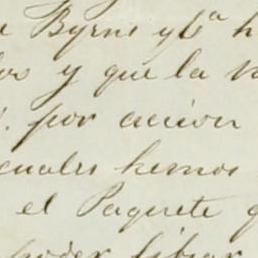 Byrne y Cª h
y que la
por accion
cuales hemos
el Paquete q
poder librar